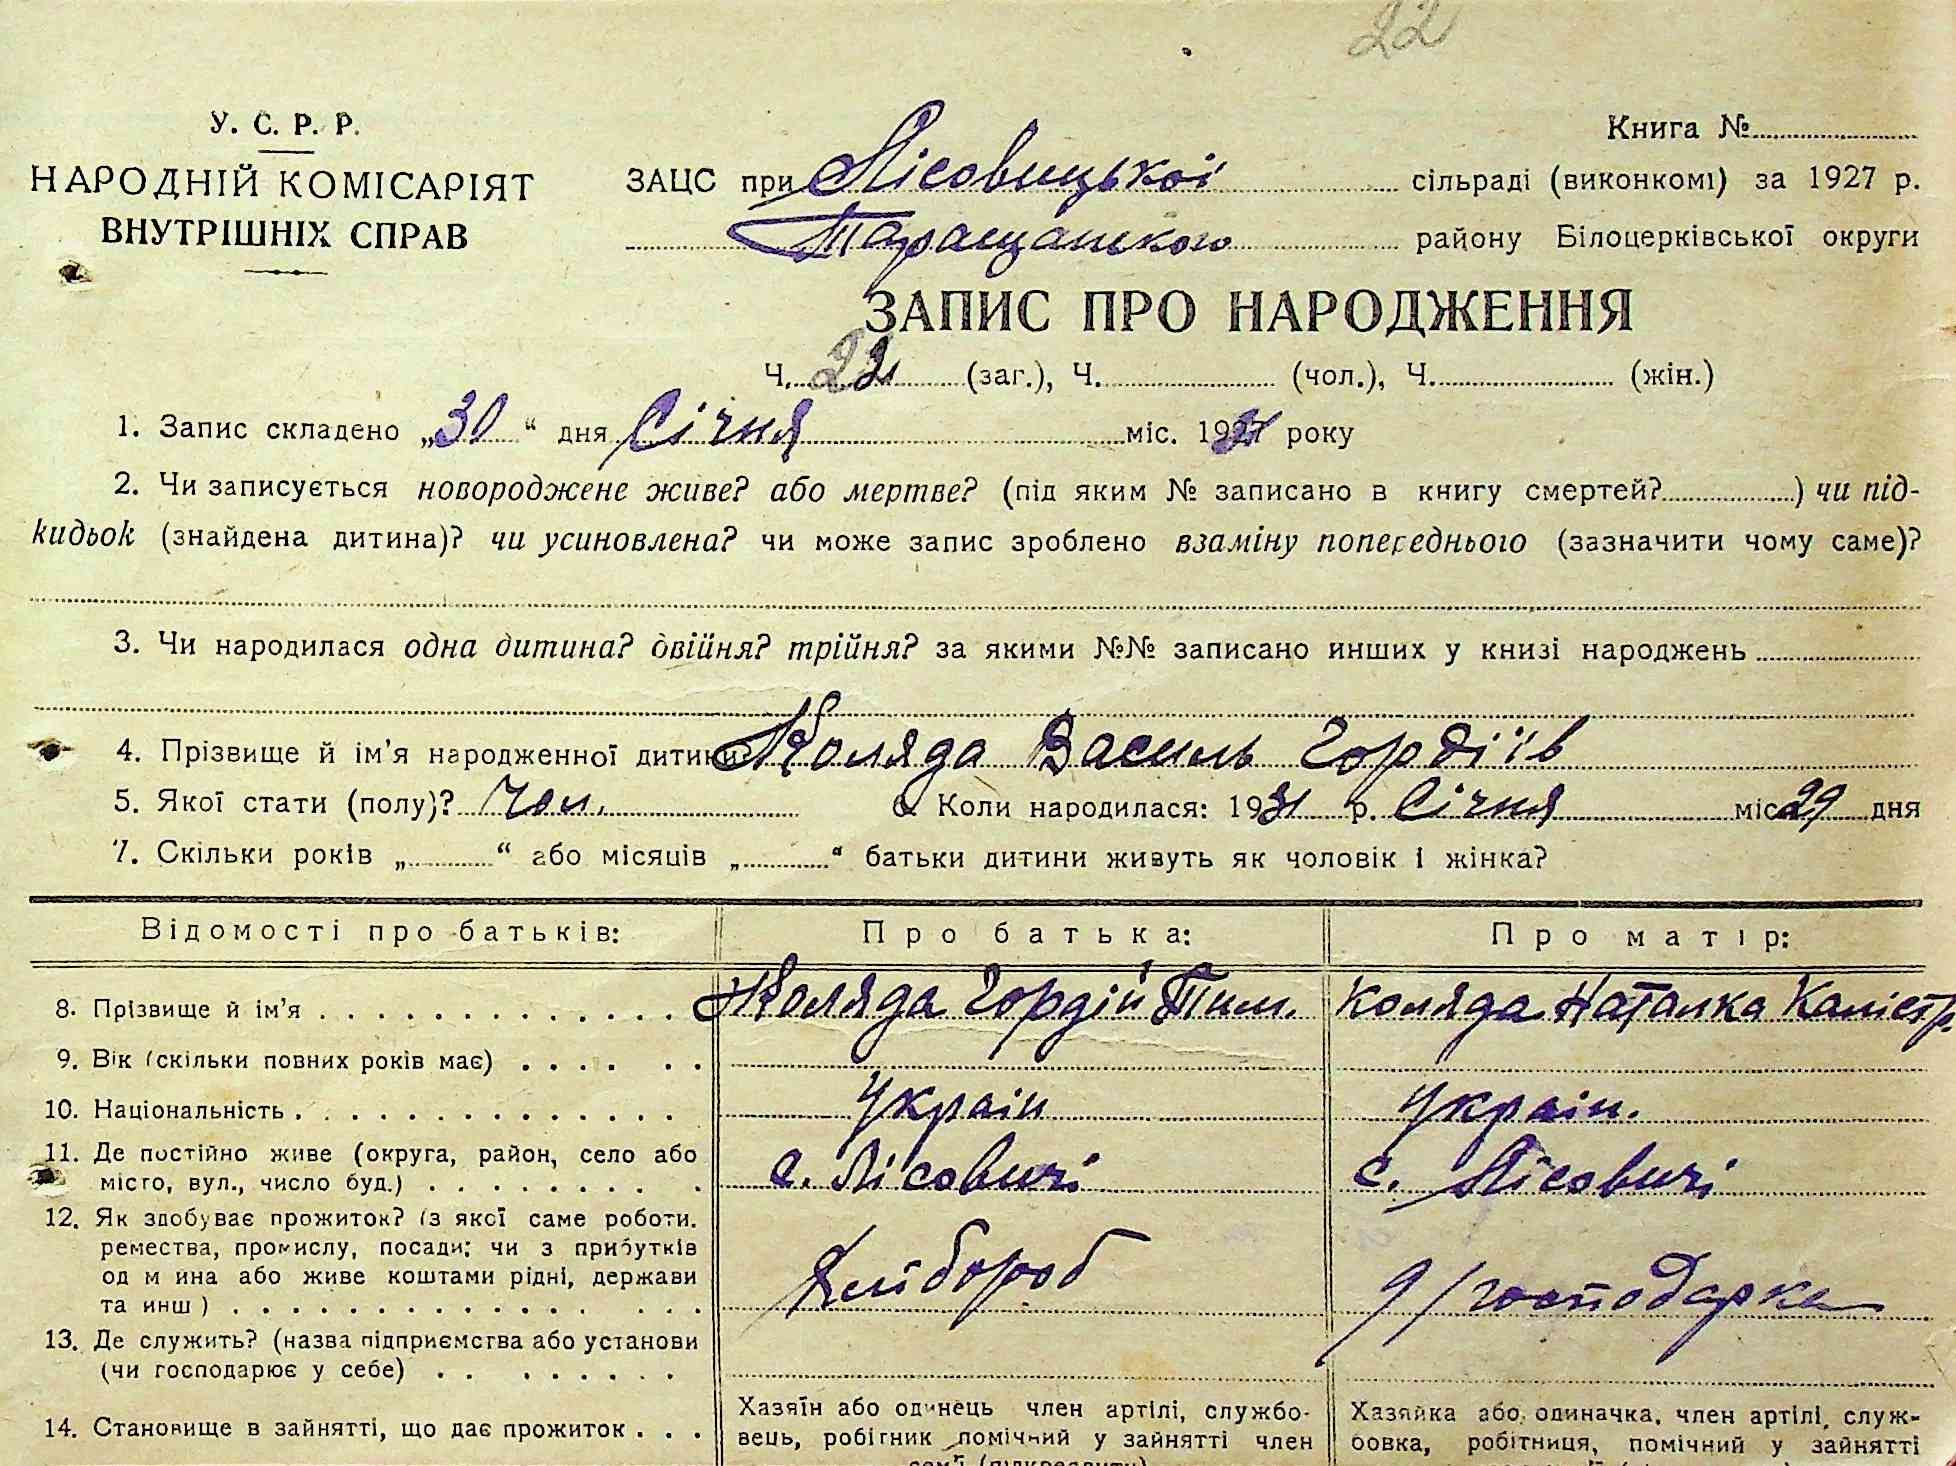 22
У. С. Р. Р.
НАРОДНІЙ КОМІСАРІЯТ
ВНУТРІШНІХ СПРАВ
Книга №
ЗАЦС при Лісовицької сільраді (виконкомі) за 1927 р.
Таращанського району Білоцерківської округи
ЗАПИС ПРО НАРОДЖЕННЯ
Ч. 22 (заг.), Ч. (чол.), Ч. (жін.)
1. Запис складено „30“ дня Січня міс. 1931 року
2. Чи записується новороджене живе? або мертве? (під яким № записано в книгу смертей? ) чи під-
кидьок (знайдена дитина)? чи усиновлена? чи може запис зроблено взаміну попереднього (зазначити чому саме)?
3. Чи народилася одна дитина? двійня? трійня? за якими №№ записано инших у книзі народжень
4. Прізвище й ім'я народженної дитини Коляда Василь Гордіїв
5. Якої стати (полу)? Чол. 6. Коли народилася: 1931 р. Січня міс 29 дня
7. Скільки років „ “ або місяців „ “ батьки дитини живуть як чоловік і жінка?
Відомості про батьків: Про батька: Про матір:
8. Прізвище й ім'я Коляда Гордій Тим. Коляда Наталка Калістр.
9. Вік (скільки повних років має)
10. Національність Украін Украін.
11. Де постійно живе (округа, район, село або
місто, вул., число буд.) с. Лісовичі с. Лісовичі
12. Як здобуває прожиток? (з якої саме роботи,
ремества, промислу, посади; чи з прибутків
од майна або живе коштами рідні, держави
та инш.) Хлібороб д/господарка
13. Де служить? (назва підприємства або установи
(чи господарює у себе)
14. Становище в зайнятті, що дає прожиток
Хазяїн або одинець член артілі, службо-
вець, робітник помічний у зайнятті член
сем'ї (підкреслити)
Хазяйка або одиначка, член артілі, служ-
бовка, робітниця, помічний у зайнятті